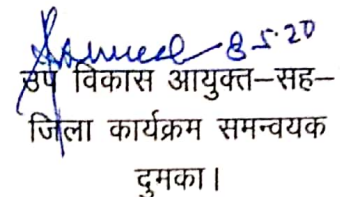 8.5.20
उप विकास आयुक्त–सह–
जिला कार्यक्रम समन्वयक
दुमका।